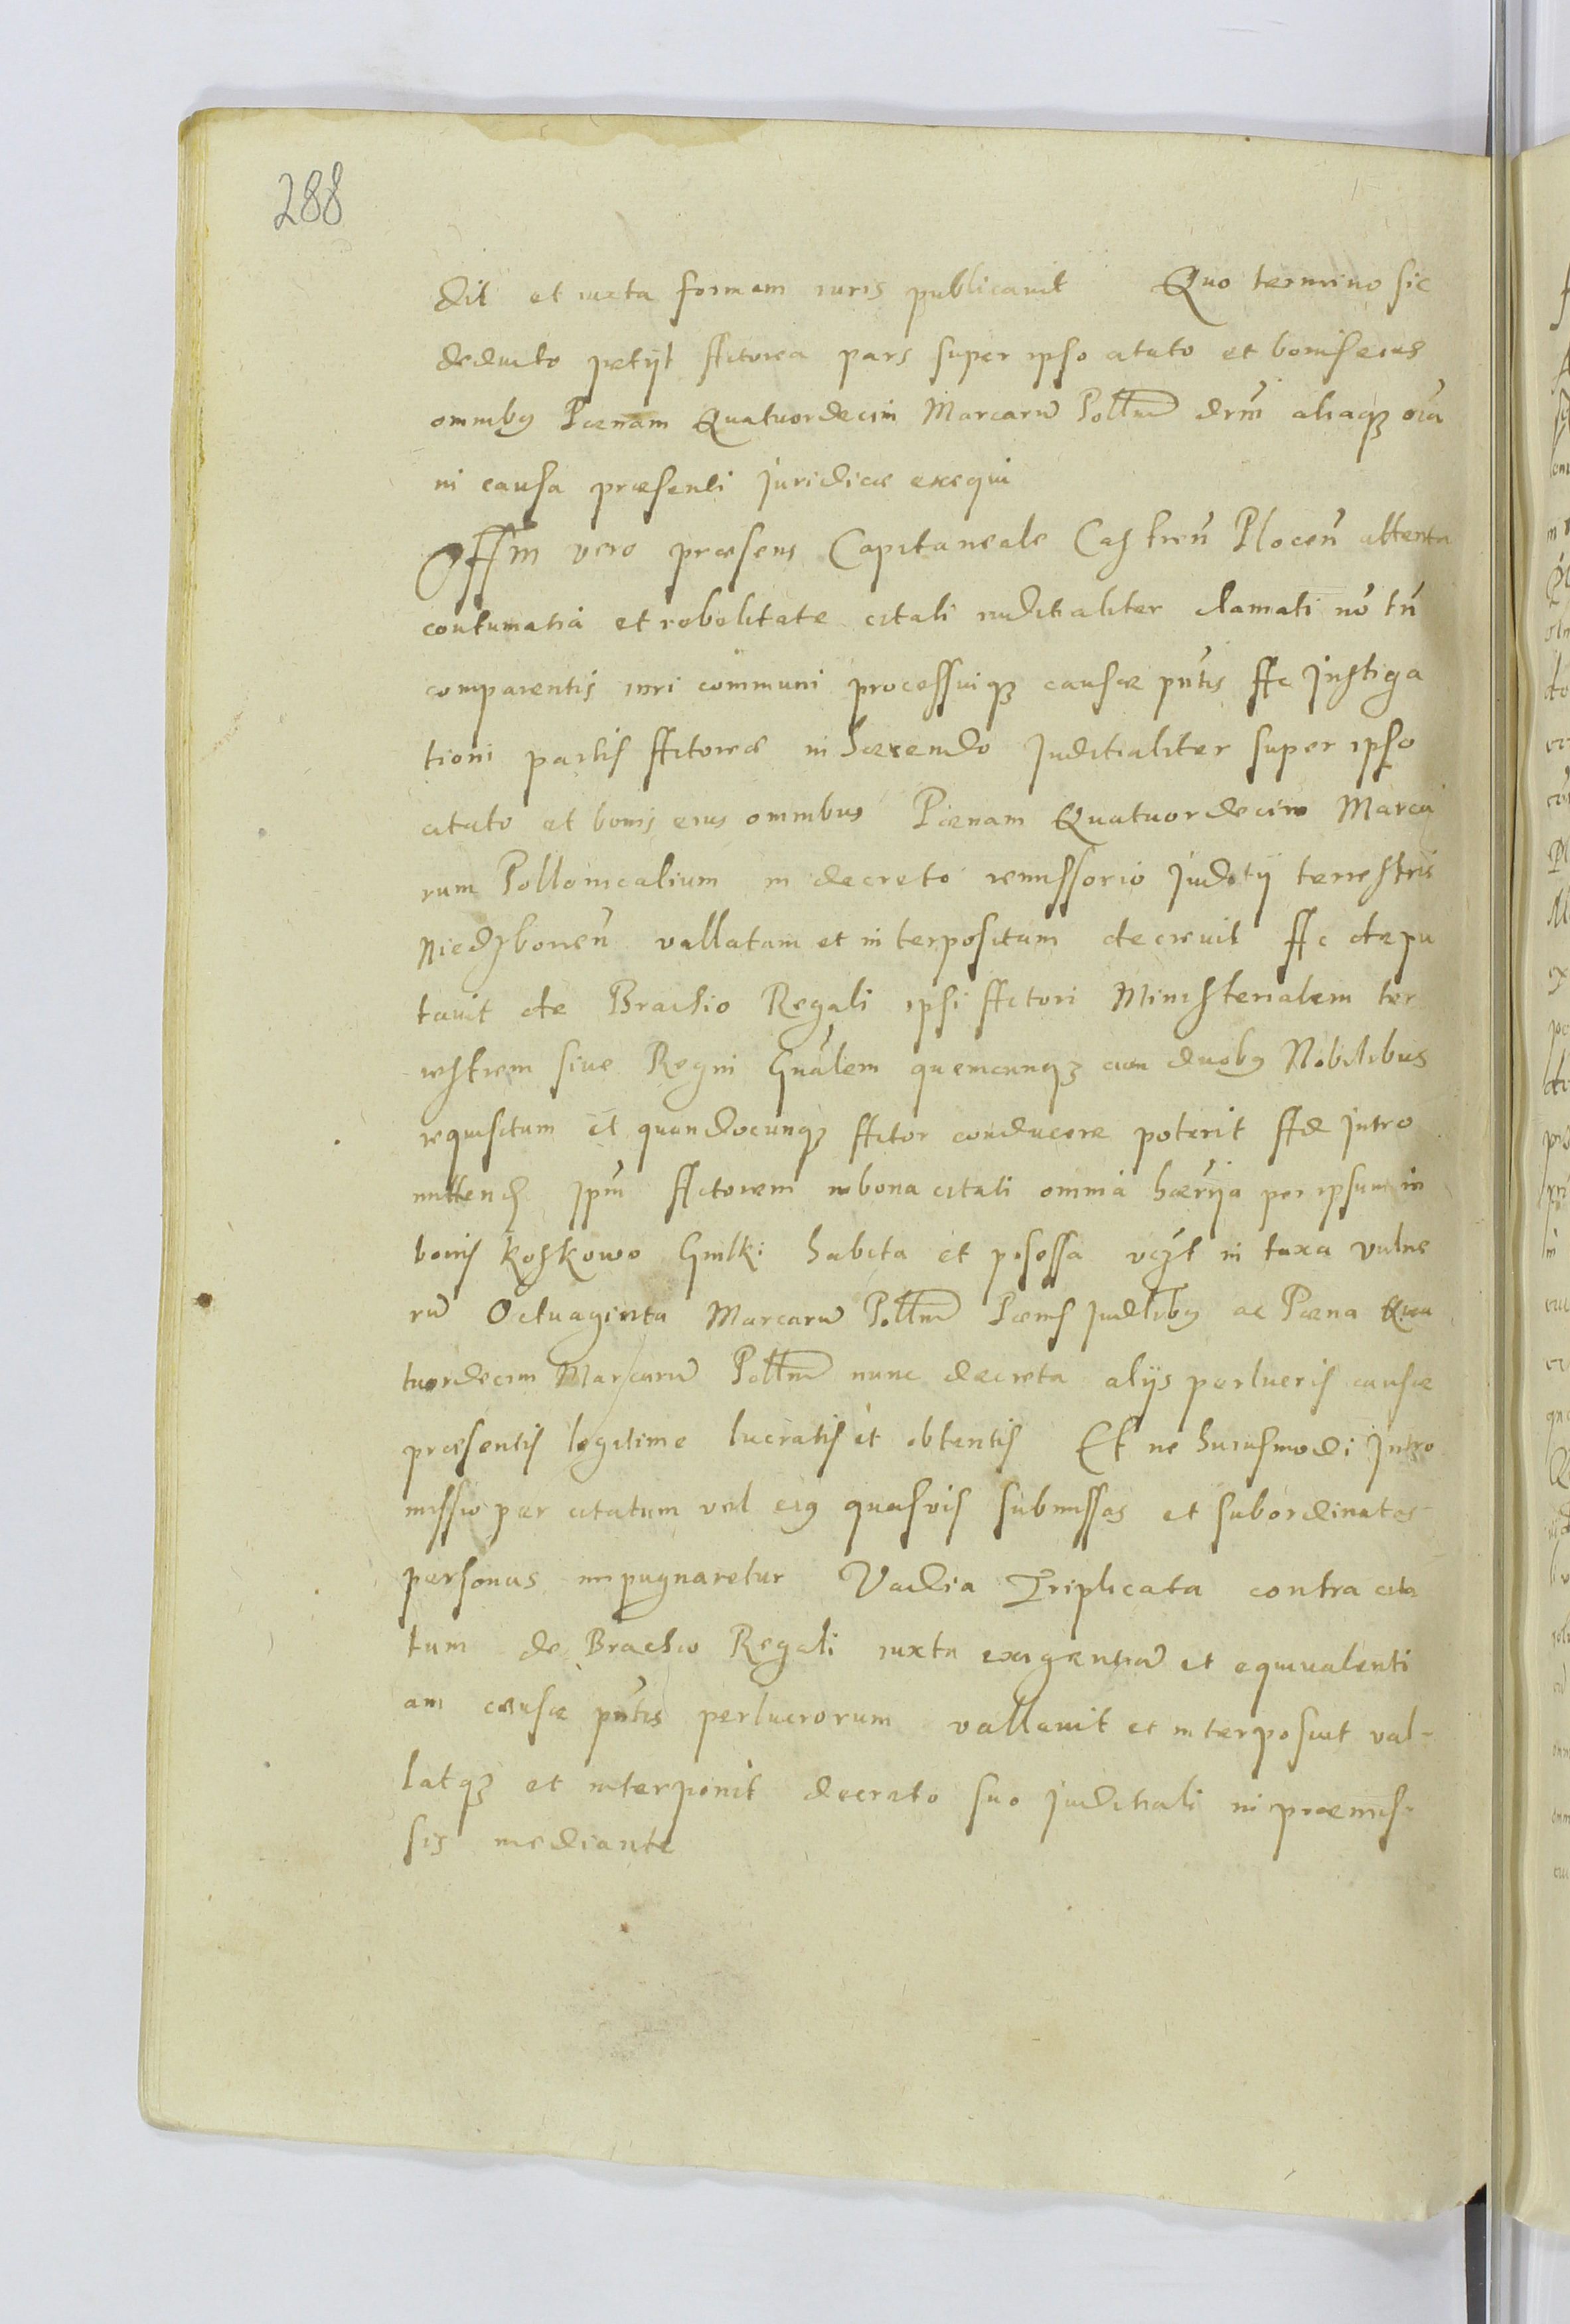 288
dit et iuxta formam iuris publicavit Quo termino sic
deducto petijt Actorea pars super ipso citato et bonis eius
omnibꝫ Pœnam Quatuordecim Marcarũ Polłlm̃ decrni aliaqꝫ oĩa
in causa præsenti Juridicæ exequi
Offm vero præsens Capitaneale Castreñ Ploceñ attenta
contumatia et rebelitate citati iuditialiter clamati nõ tñ
comparentis iuri communi processuiqꝫ causæ pñtis Ac Jnstiga
tioni partis Actoreæ in hærendo Juditialiter super ipso
citato et bonis eius omnibus Pœnam Quatuordecim Marca
rum Pollonicalium in decreto remissorio Juditij terrestris
Niedzboreñ vallatam et interpositam decrevit Ac depu
tavit de Brachio Regali ipsi Actori Ministerialem ter
restrem sive Regni Gñalem quemcunqꝫ cum duobꝫ Nobilibus
requisitum et quandocunqꝫ Actor conducere poterit Ad Jntro
mittend Jpm̃ Actorem in bona citati omnia hærija per ipsum in
bonis Koskowo Gmlki habita et posessa vczt in taxa vulne
rũ Octuaginta Marcarũ Polłlm̃ Pœnis Judlibꝫ ac Pœna Qua
tuordecim Marcarũ Polłlm̃ nunc decreta alijs perlucris causæ
præsentis legitime lucratis et obtentis Et ne huiusmodi Jntro
missio per citatum vel eiꝫ quasvis submissas et subordinatas
personas impugnaretur Vadia Triplicata contra cita
tum de Brachio Regali iuxta exigentiã et equivalenti
am causæ pñtis perlucrorum vallavit et interposuit val-
latqꝫ et interponit decreto suo Juditiali in præmis-
sis mediante